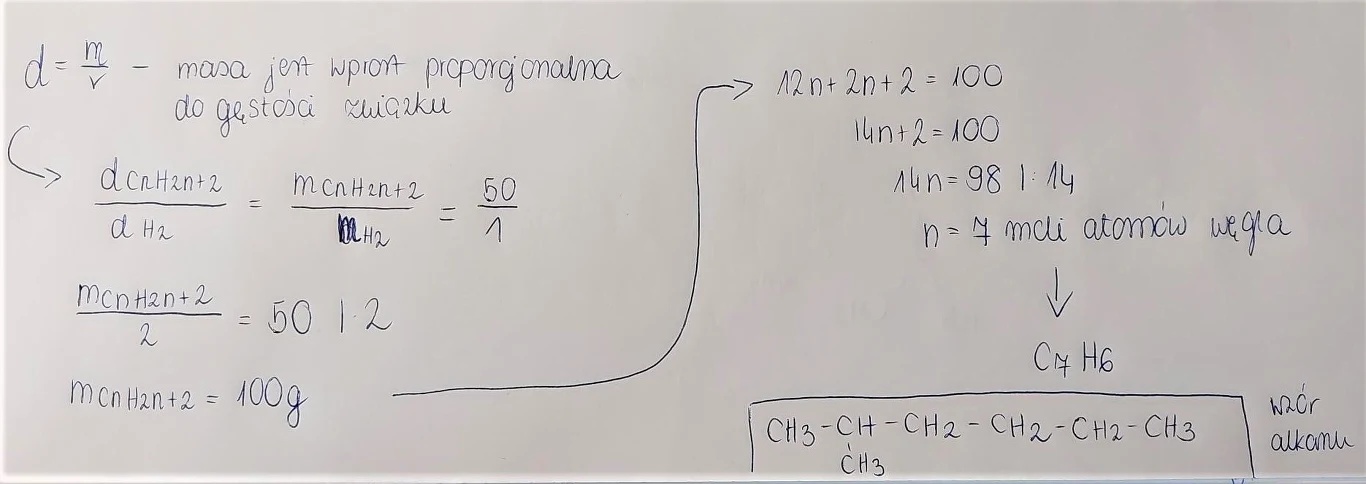 d = m/v - masa jest wprost proporcjonalna
do gęstości związku
dCnH2n+2 / dH2 = mCnH2n+2 / mH2 = 50/1
mCnH2n+2 / 2 = 50 |·2
mCnH2n+2 = 100g
12n + 2n + 2 = 100
14n + 2 = 100
14n = 98 |:14
n = 7 moli atomów węgla
C7H6
CH3-CH-CH2-CH2-CH2-CH3
CH3
wzór
alkanu